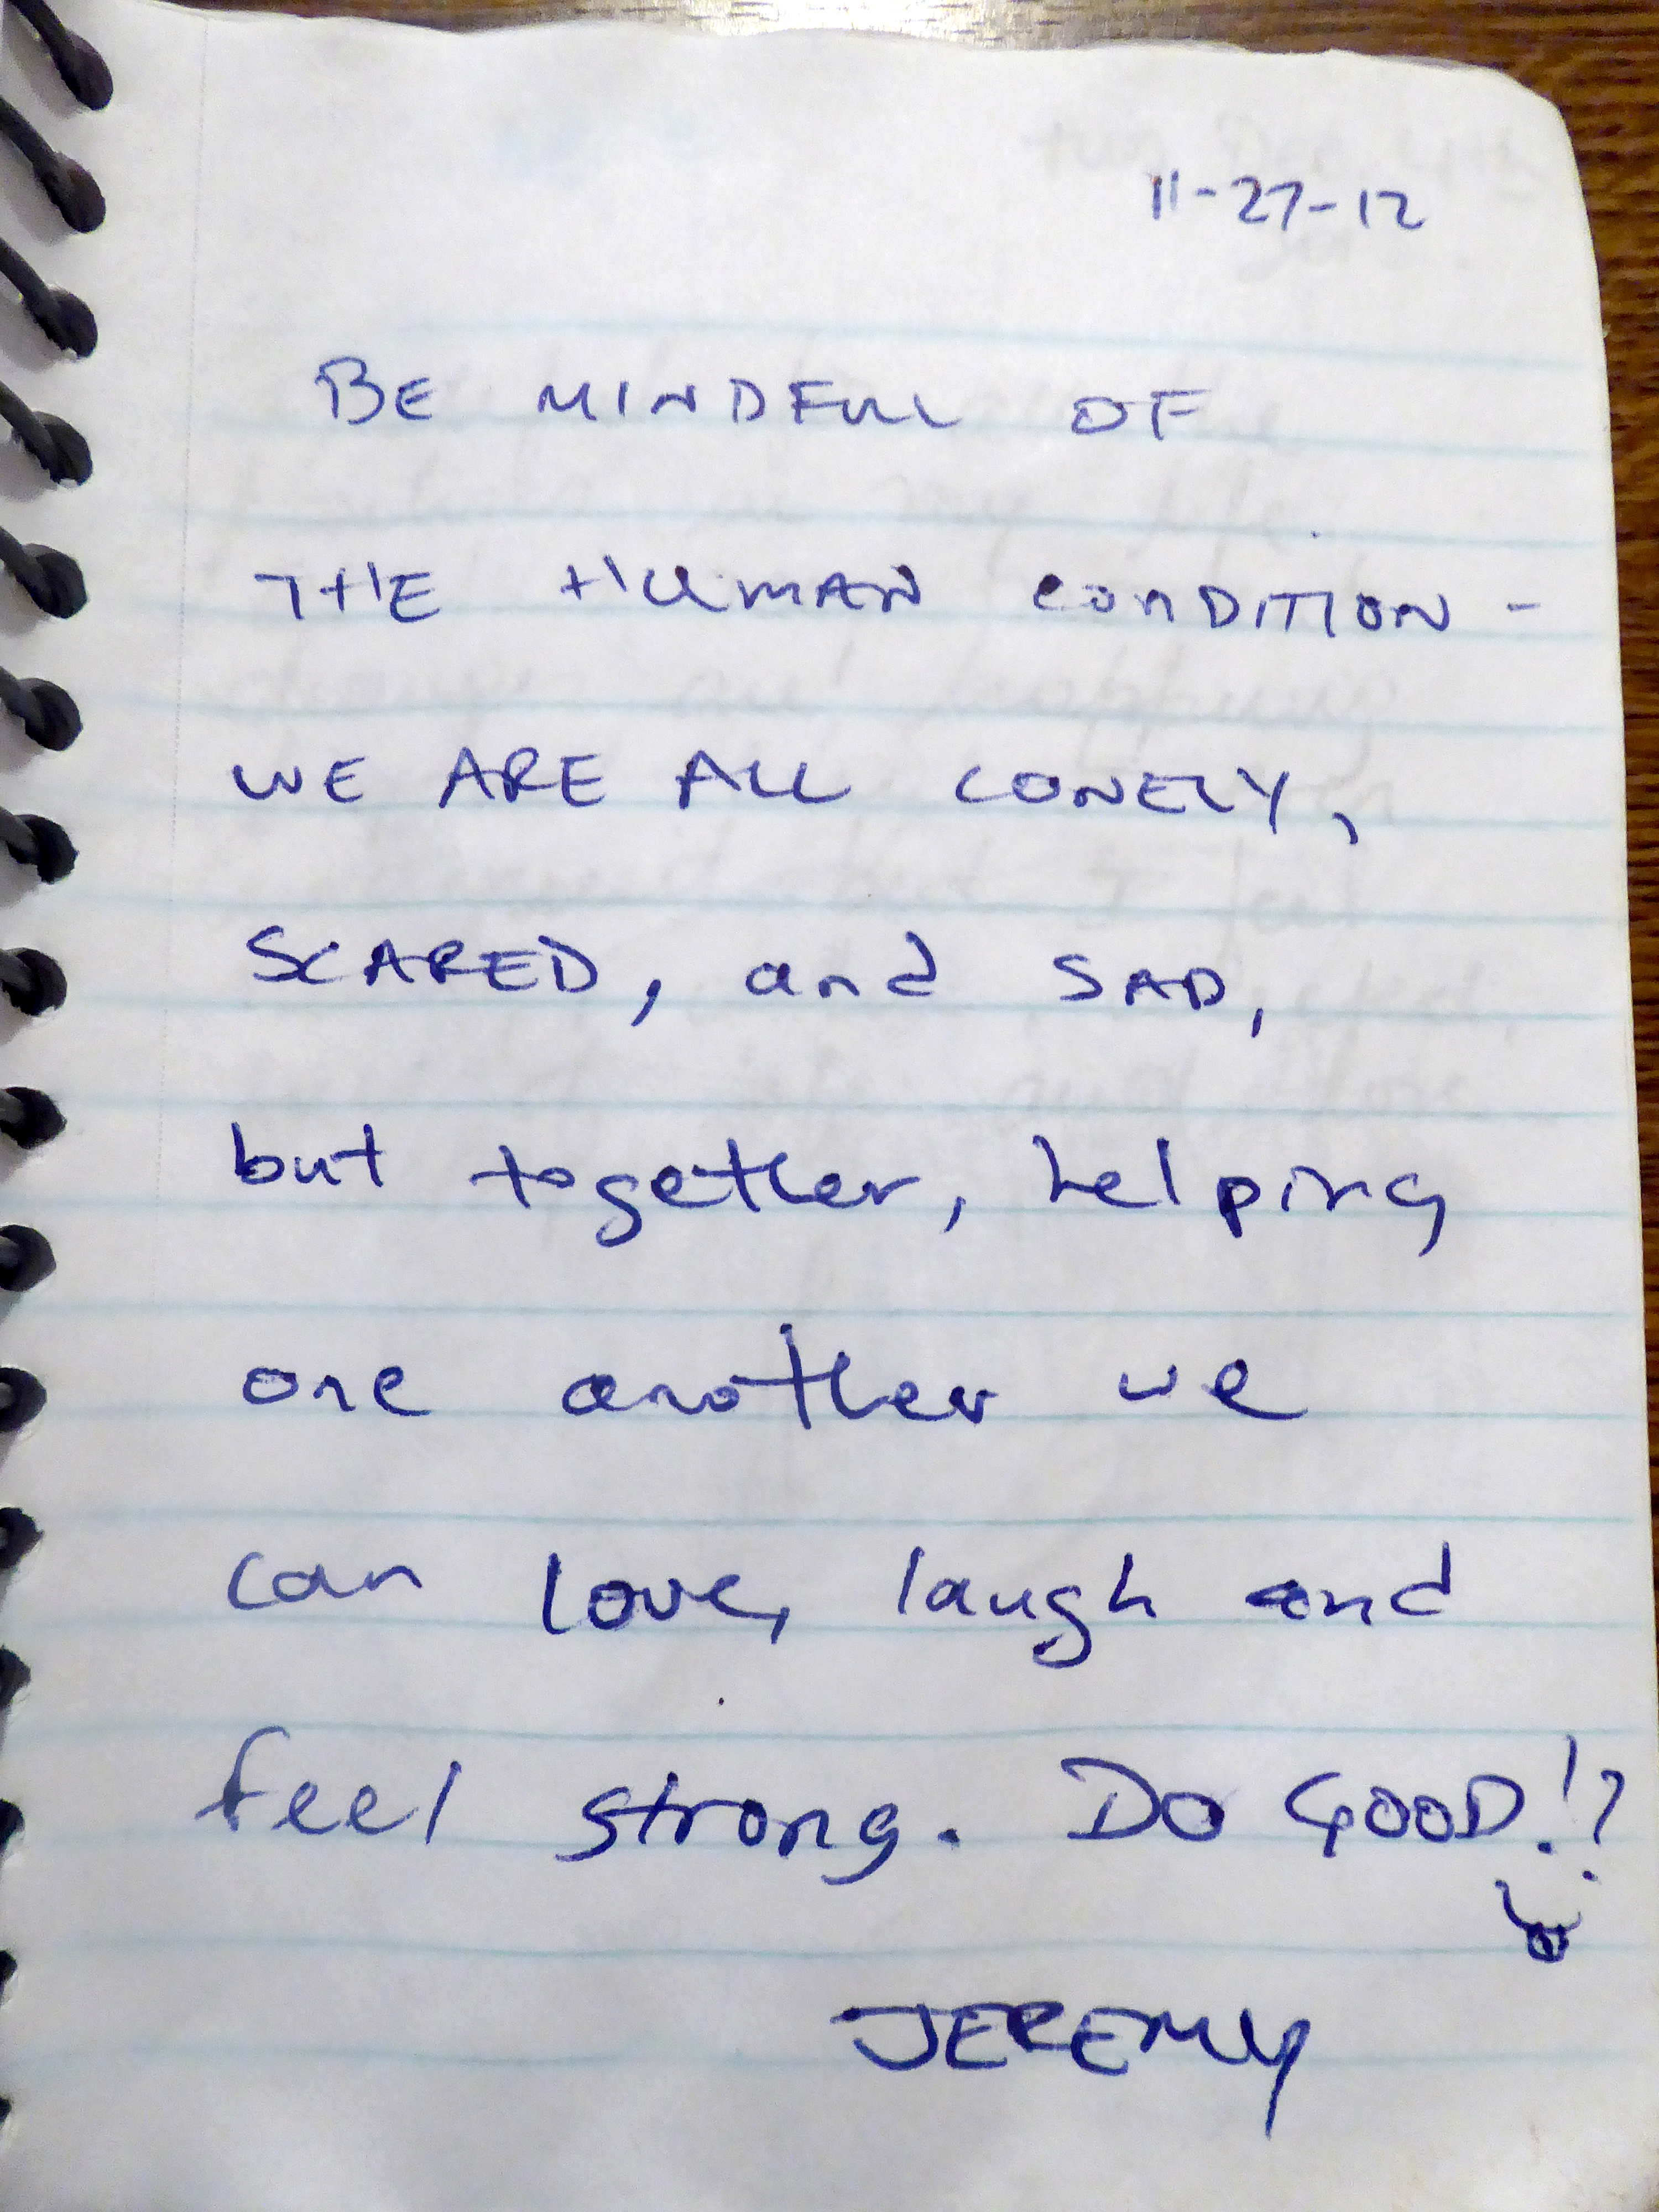 11-27-12
BE MINDFUL OF
THE HUMAN CONDITION -
WE ARE ALL LONELY,
SCARED, and SAD,
but together, helping
one another we
can love, laugh and
feel strong. DO GOOD!?
JEREMY